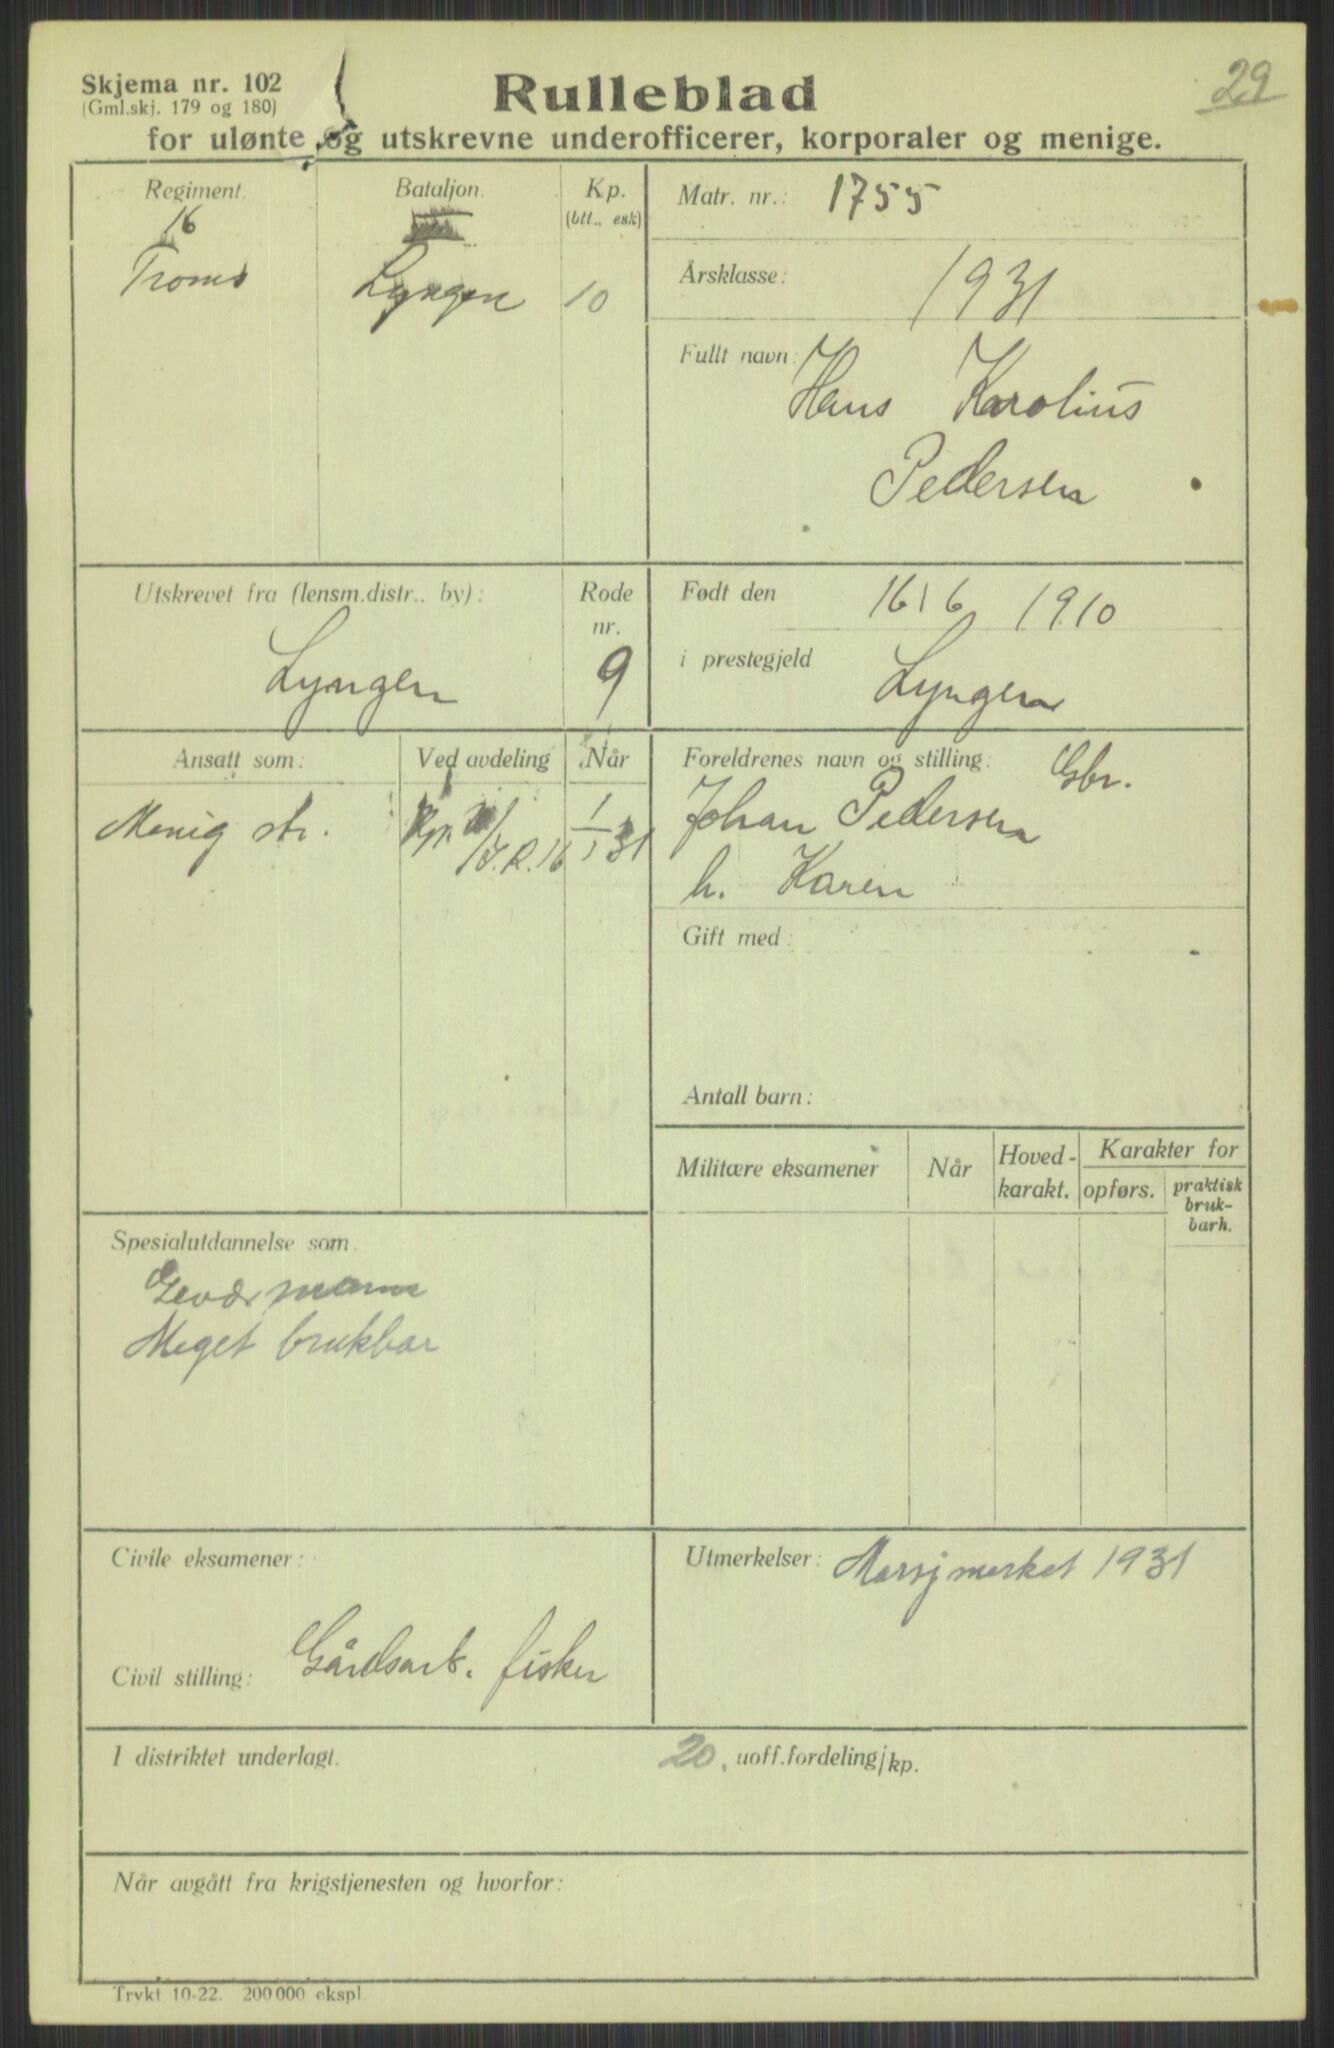 Skjema nr. 102
(Gml.skj. 179 og 180)
Rulleblad
29
for ulønte og utskrevne underofficerer, korporaler og menige.
Regiment.
Bataljon.
Kp.
(btt., esk)
16
Troms
Lyngen
10
Matr. nr.: 1755
Årsklasse: 1931
Fullt navn: Hans Karolius
Pedersen
Utskrevet fra (lensm.distr.. by):
Lyngen
Rode
nr.
9
Født den 16/6 1910
i prestegjeld Lyngen
Ansatt som:
Ved avdeling
Når
Menig str.
Kp.
/J.R.16
1/1 31
Foreldrenes navn og stilling: Gbr.
Johan Pedersen
h. Karen
Gift med:
Antall barn:
Militære eksamener
Når
Hoved-
karakt.
Karakter for
opførs.
praktisk
bruk-
barh.
Spesialutdannelse som:
Geværmann
Meget brukbar
Civile eksamener:
Civil stilling: Gårdsarb. fisker
Utmerkelser: Marsjmerket 1931
I distriktet underlagt. 20. uoff.fordeling/kp.
Når avgått fra krigstjenesten og hvorfor:
Trykt 10-22. 200 000 ekspl.